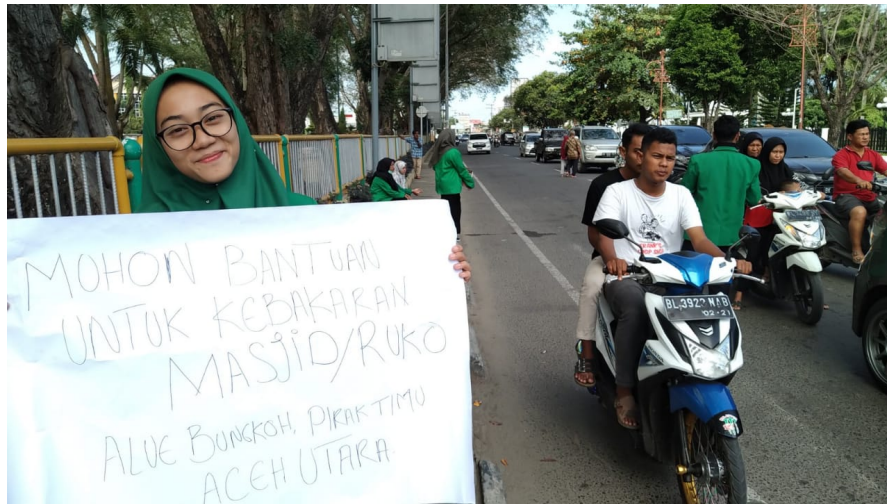 MOHON BANTUAN
UNTUK KEBAKARAN
MASJID/RUKO
ALUE BUNGKOH, PIRAK TIMU
ACEH UTARA
BL 3922 NAB
02·21